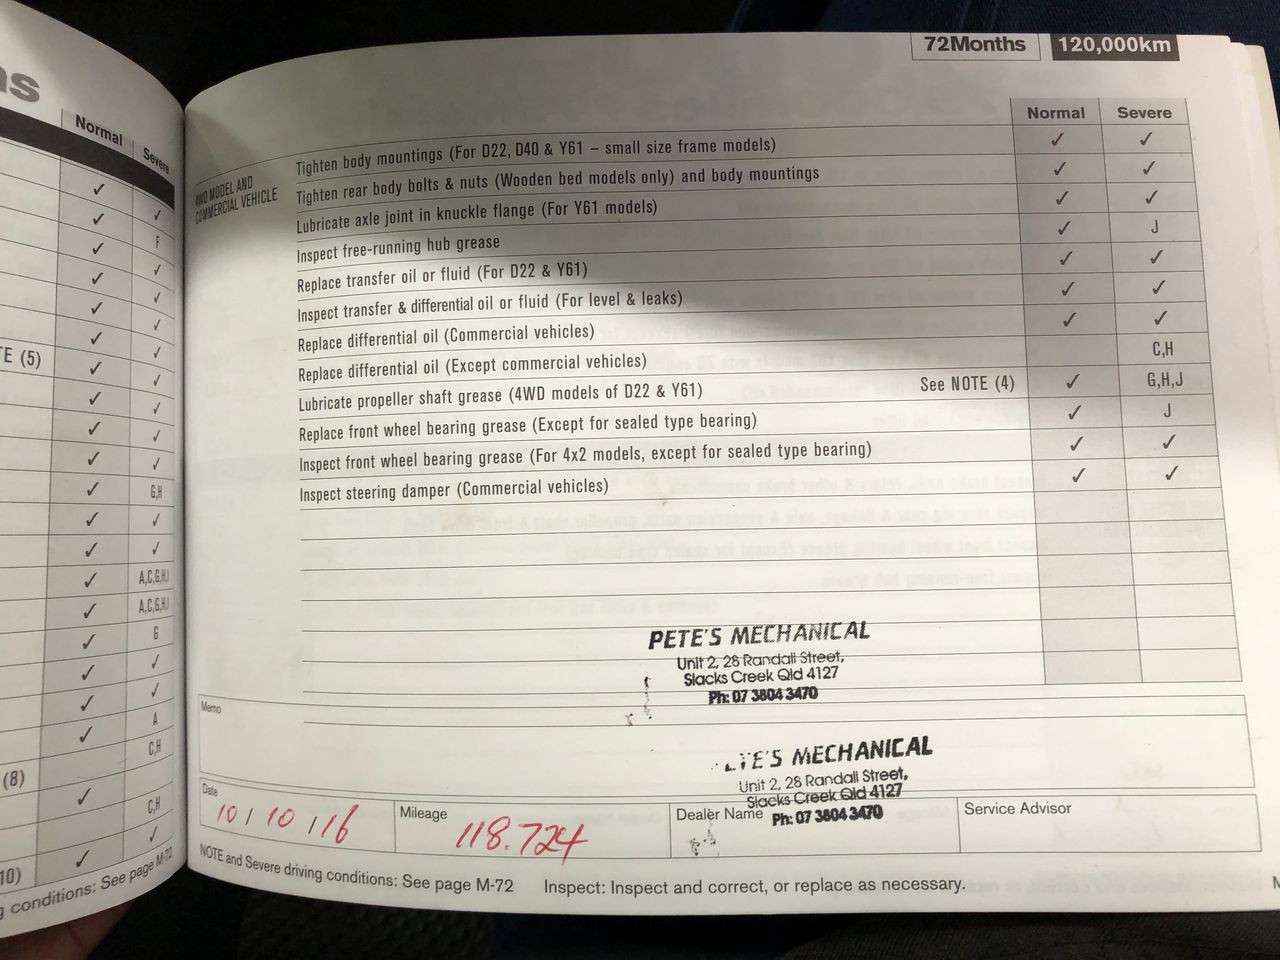 ns
Normal
Severe
✓
✓ ✓
✓ F
✓ ✓
✓ ✓
✓ ✓
TE (5) ✓ ✓
✓ ✓
✓ ✓
✓ ✓
✓ G,H
✓ ✓
✓ ✓
✓ A,C,G,H,J
✓ A,C,G,H,J
✓ G
✓ ✓
✓ ✓
✓ A
C,H
(8)
✓ C,H
✓
10) ✓
g conditions: See page M-72
72Months 120,000km
Normal Severe
4WD MODEL AND
COMMERCIAL VEHICLE
Tighten body mountings (For D22, D40 & Y61 – small size frame models) ✓ ✓
Tighten rear body bolts & nuts (Wooden bed models only) and body mountings ✓ ✓
Lubricate axle joint in knuckle flange (For Y61 models) ✓ ✓
Inspect free-running hub grease ✓ J
Replace transfer oil or fluid (For D22 & Y61) ✓ ✓
Inspect transfer & differential oil or fluid (For level & leaks) ✓ ✓
Replace differential oil (Commercial vehicles) ✓ ✓
Replace differential oil (Except commercial vehicles) C,H
Lubricate propeller shaft grease (4WD models of D22 & Y61) See NOTE (4) ✓ G,H,J
Replace front wheel bearing grease (Except for sealed type bearing) ✓ J
Inspect front wheel bearing grease (For 4x2 models, except for sealed type bearing) ✓ ✓
Inspect steering damper (Commercial vehicles) ✓ ✓
PETE'S MECHANICAL
Unit 2, 28 Randall Street,
Slacks Creek Qld 4127
Ph: 07 3804 3470
Memo
TE'S MECHANICAL
Unit 2, 28 Randall Street,
Slacks Creek Qld 4127
Ph: 07 3804 3470
Date 10 / 10 / 16
Mileage 118.724
Dealer Name
Service Advisor
NOTE and Severe driving conditions: See page M-72 Inspect: Inspect and correct, or replace as necessary.
M